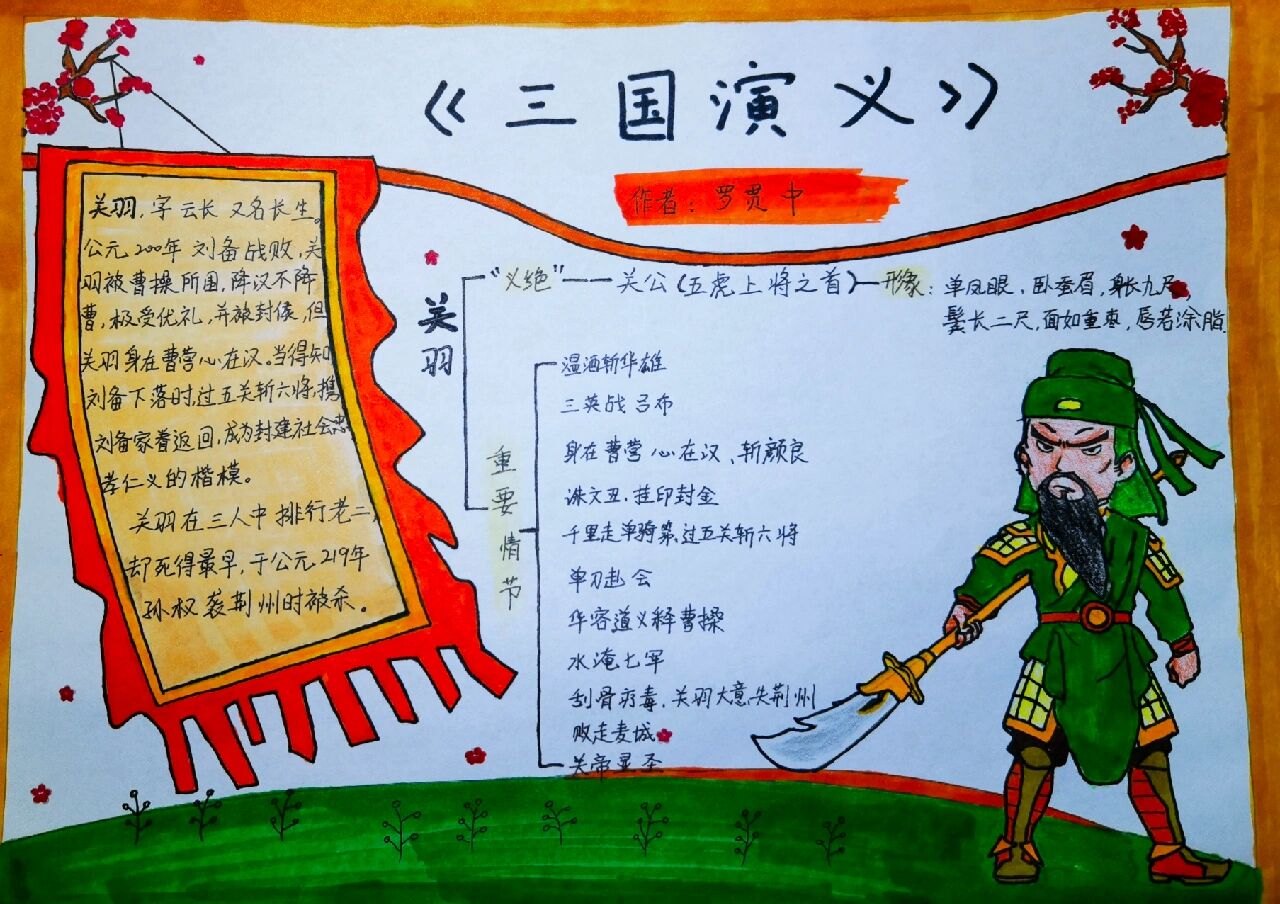 《三国演义》
作者：罗贯中
关羽，字云长 又名长生。
公元200年 刘备战败，关
羽被曹操所围，降汉不降
曹，极受优礼，并被封侯，但
关羽身在曹营心在汉。当得知
刘备下落时，过五关斩六将，携
刘备家眷返回，成为封建社会忠
孝仁义的楷模。
关羽在三人中排行老二，
却死得最早，于公元219年
孙权袭荆州时被杀。
关羽
"义绝"——关公(五虎上将之首)—形象：单凤眼，卧蚕眉，身长九尺，
髯长二尺，面如重枣，唇若涂脂
重要情节
温酒斩华雄
三英战吕布
身在曹营心在汉、斩颜良
诛文丑，挂印封金
千里走单骑，过五关斩六将
单刀赴会
华容道义释曹操
水淹七军
刮骨疗毒，关羽大意失荆州
败走麦城
关帝显圣